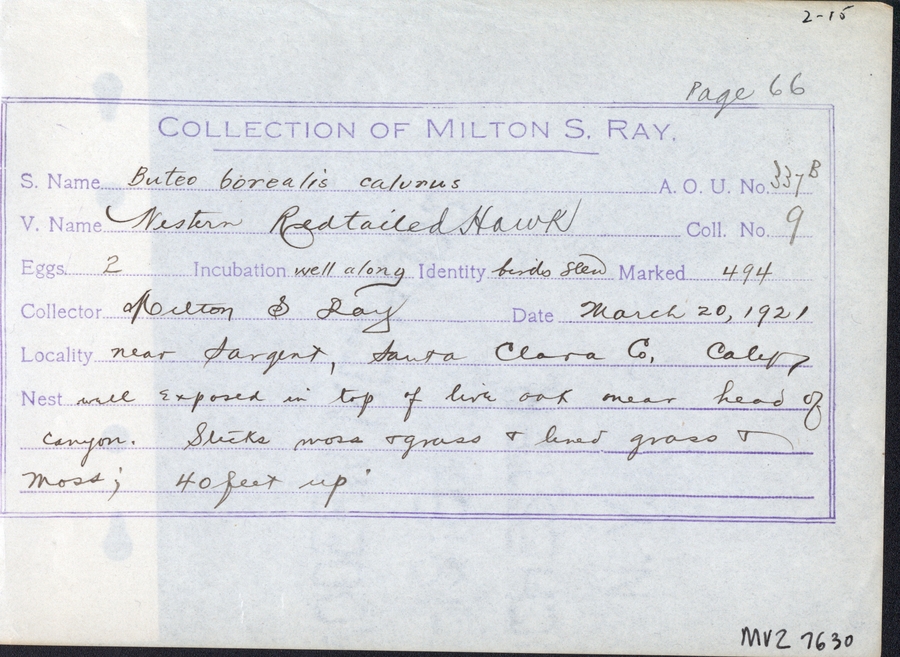 2-15
Page 66
COLLECTION OF MILTON S. RAY.
S. Name Buteo borealis calurus A. O. U. No. 337B
V. Name Western Redtailed Hawk Coll. No. 9
Eggs 2 Incubation well along Identity birds seen Marked 494
Collector Milton S Ray Date March 20, 1921
Locality near Sargent, Santa Clara Co, Calif
Nest well exposed in top of live oak near head of
canyon. Sticks moss & grass & lined grass &
moss; 40 feet up
MVZ 7630